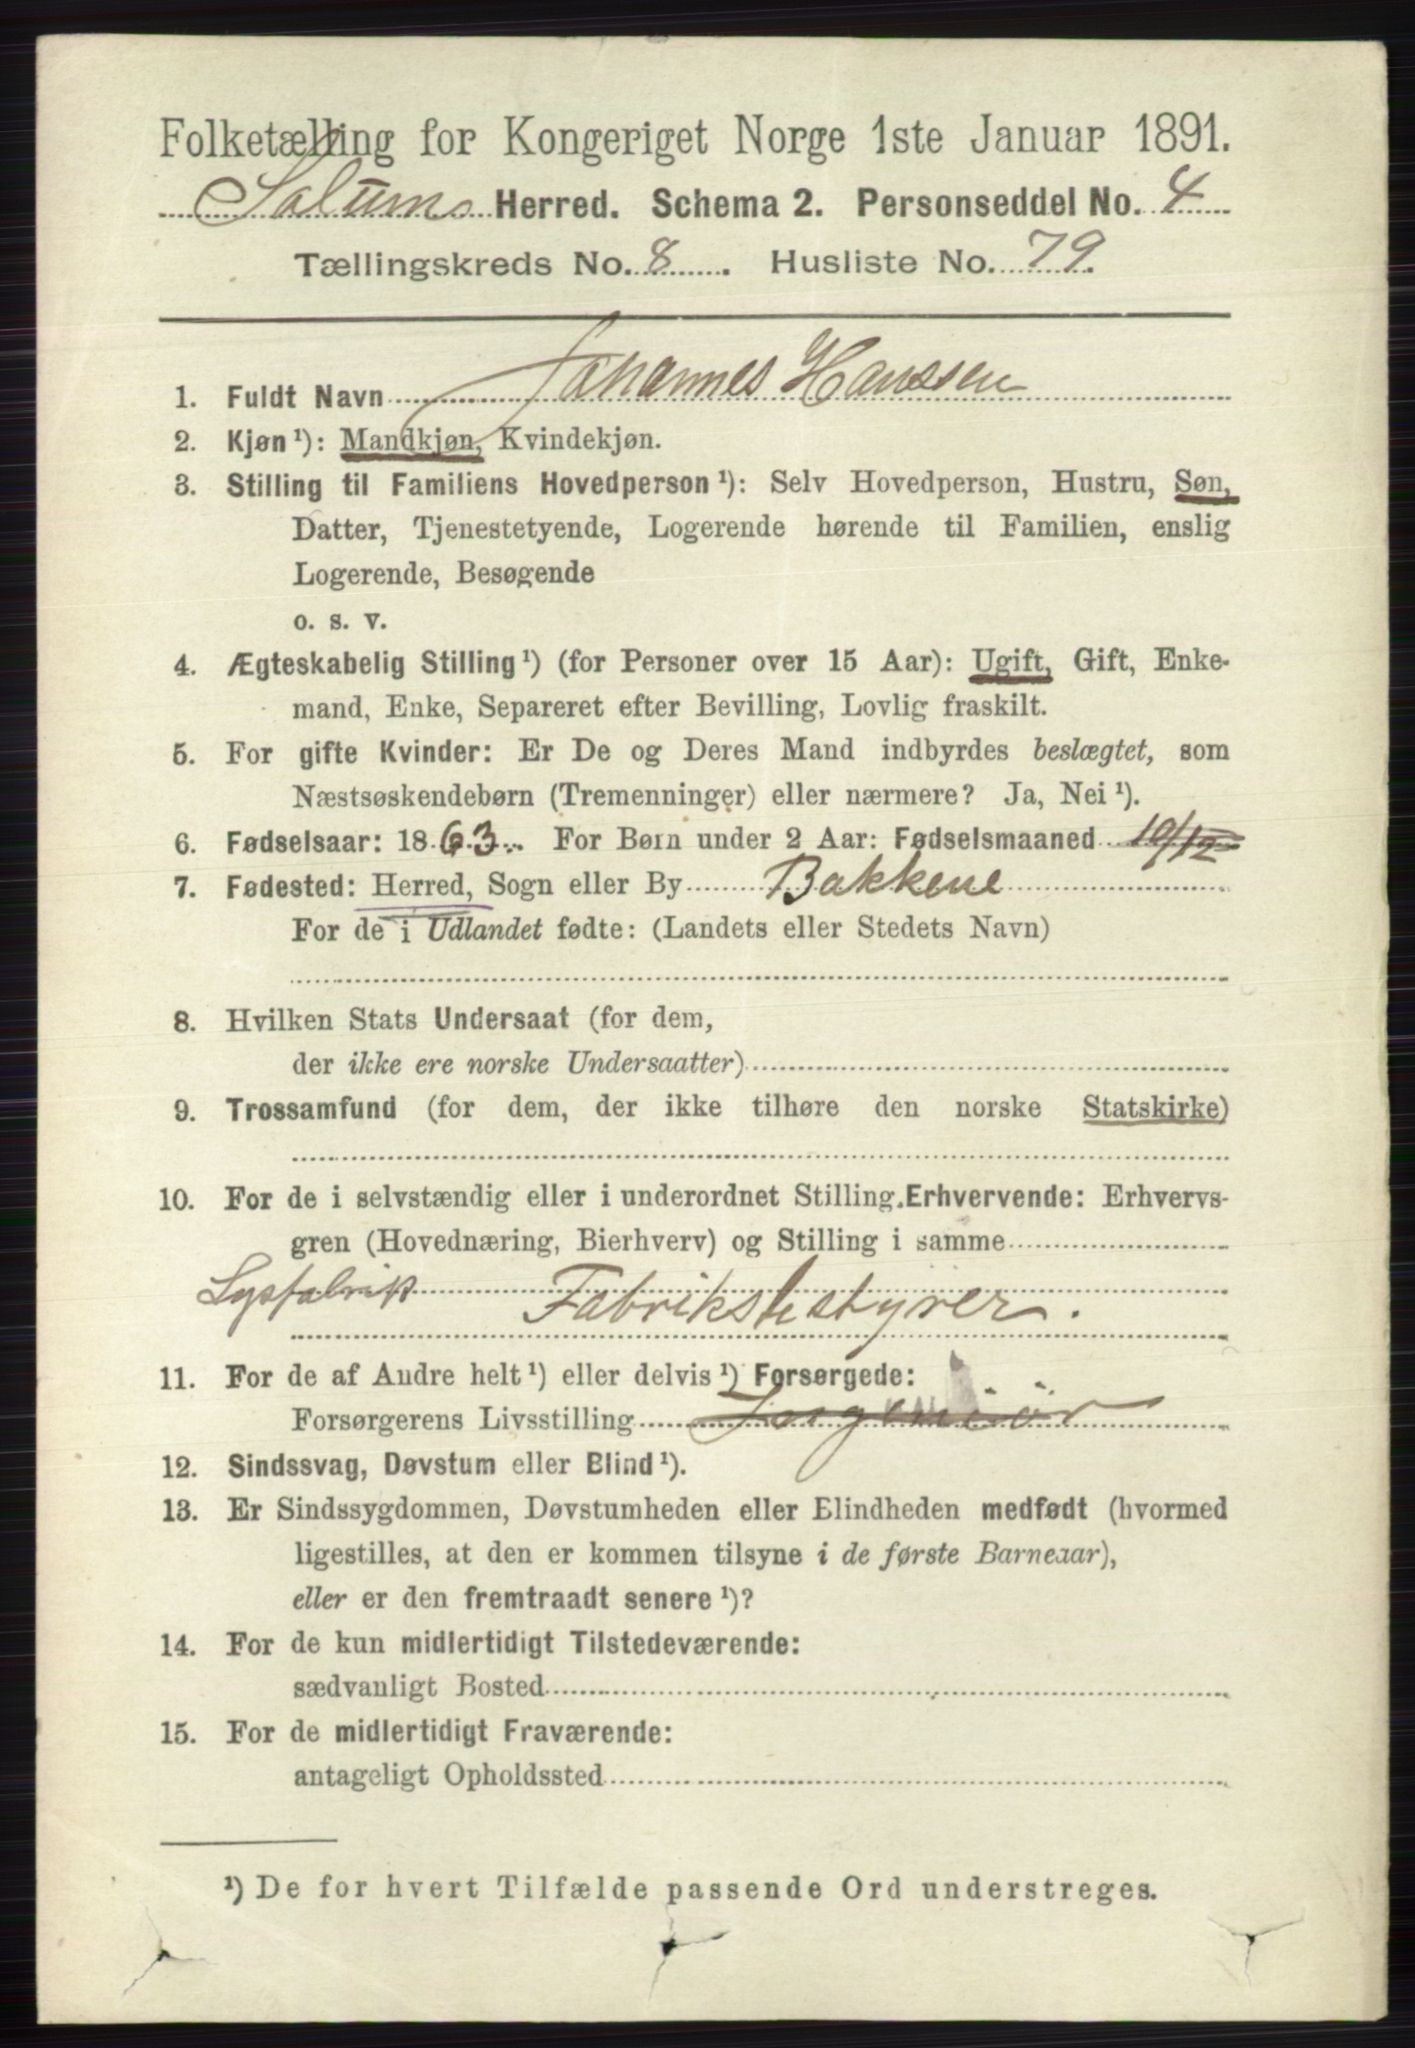 Folketælling for Kongeriget Norge 1ste Januar 1891.
Solums Herred. Schema 2. Personseddel No. 4
Tællingskreds No. 8 . Husliste No. 79.
1. Fuldt Navn Johannes Hanssen
2. Kjøn ¹): Mandkjøn, Kvindekjøn.
3. Stilling til Familiens Hovedperson ¹): Selv Hovedperson, Hustru, Søn,
Datter, Tjenestetyende, Logerende hørende til Familien, enslig
Logerende, Besøgende
o. s. v.
4. Ægteskabelig Stilling ¹) (for Personer over 15 Aar): Ugift, Gift, Enke-
mand, Enke, Separeret efter Bevilling, Lovlig fraskilt.
5. For gifte Kvinder: Er De og Deres Mand indbyrdes beslægtet, som
Næstsøskendebørn (Tremenninger) eller nærmere? Ja, Nei ¹).
6. Fødselsaar: 1863. For Børn under 2 Aar: Fødselsmaaned 10/12
7. Fødested: Herred, Sogn eller By Bakkene
For de i Udlandet fødte: (Landets eller Stedets Navn)
8. Hvilken Stats Undersaat (for dem,
der ikke ere norske Undersaatter)
9. Trossamfund (for dem, der ikke tilhøre den norske Statskirke)
10. For de i selvstændig eller i underordnet Stilling Erhvervende: Erhvervs-
gren (Hovednæring, Bierhverv) og Stilling i samme
Lysfabrik Fabriksbestyrer.
11. For de af Andre helt ¹) eller delvis ¹) Forsørgede:
Forsørgerens Livsstilling Ingeniør
12. Sindssvag, Døvstum eller Blind ¹).
13. Er Sindssygdommen, Døvstumheden eller Blindheden medfødt (hvormed
ligestilles, at den er kommen tilsyne i de første Barneaar),
eller er den fremtraadt senere ¹)?
14. For de kun midlertidigt Tilstedeværende:
sædvanligt Bosted
15. For de midlertidigt Fraværende:
antageligt Opholdssted
¹) De for hvert Tilfælde passende Ord understreges.